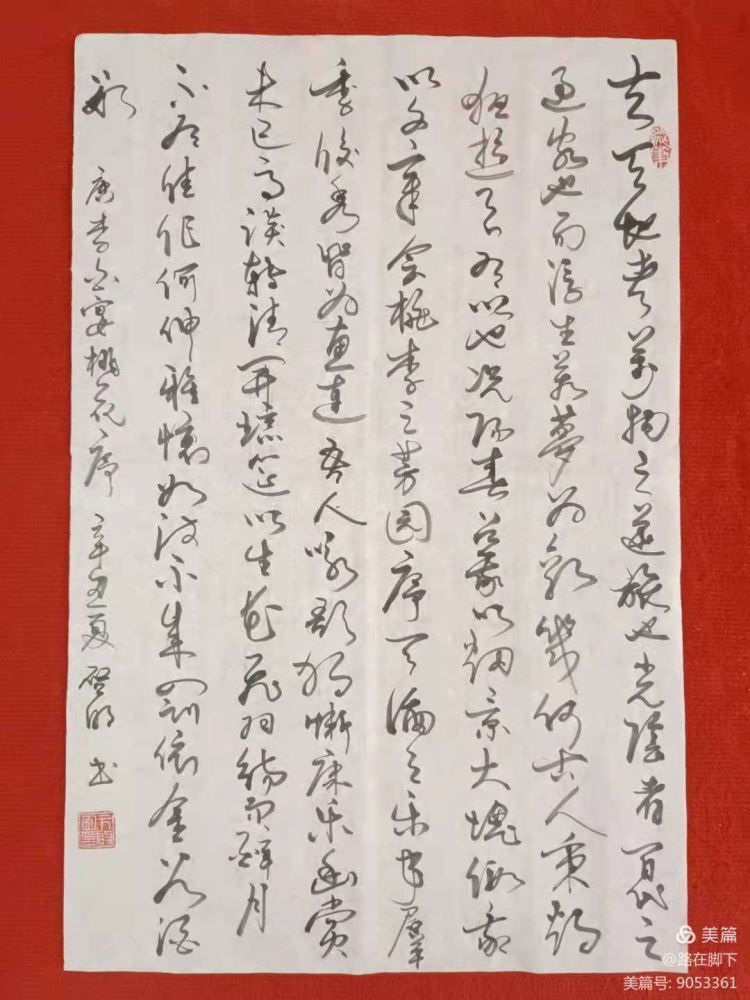 夫天地者萬物之逆旅也光陰者百代之
過客也而浮生若夢为歡幾何古人秉燭
夜遊良有以也况陽春召我以烟景大塊假我
以文章會桃李之芳园序天倫之乐事羣
季俊秀皆为惠連吾人咏歌独慚康乐幽賞
未已高談轉清開瓊筵以坐花飛羽觴而醉月
不有佳作何伸雅懷如詩不成罰依金谷酒
数 唐李白宴桃花序 辛丑夏 啓明书
美篇
@路在脚下
美篇号: 9053361